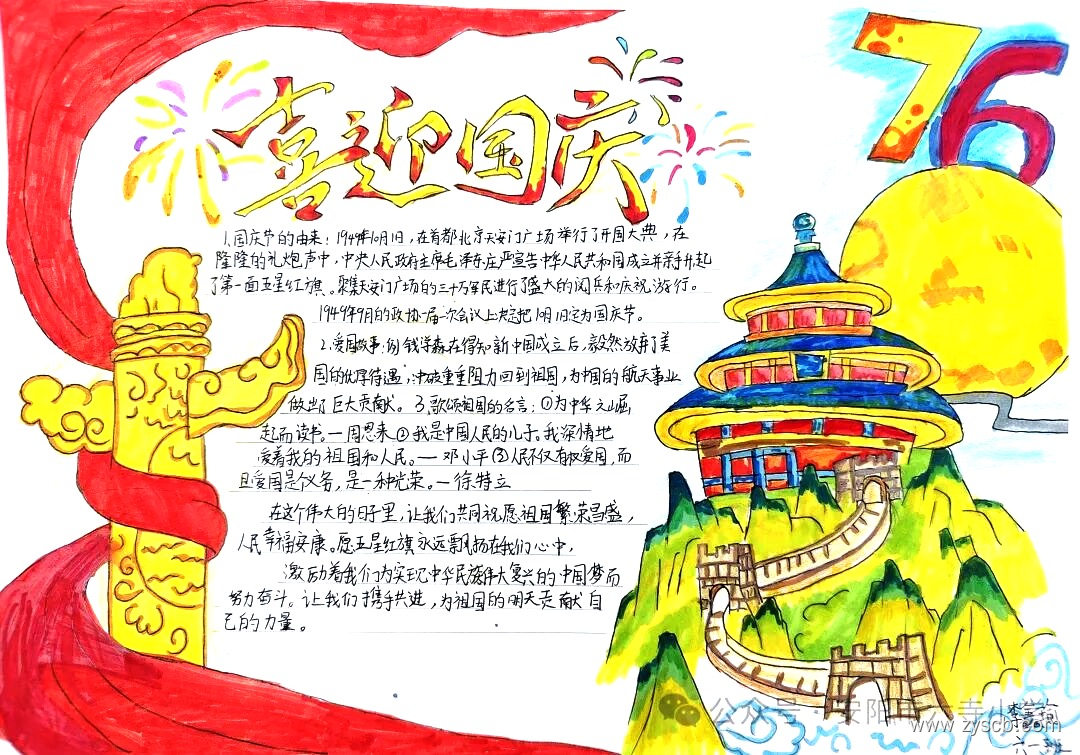 喜迎国庆
76
1.国庆节的由来：1949年10月1日，在首都北京天安门广场举行了开国大典，在
隆隆的礼炮声中，中央人民政府主席毛泽东庄严宣告中华人民共和国成立并亲手升起
了第一面五星红旗。聚集天安门广场的三十万军民进行了盛大的阅兵和庆祝游行。
1949年9月的政协一届一次会议上决定把10月1日定为国庆节。
2.爱国故事：例钱学森在得知新中国成立后，毅然放弃了美
国的优厚待遇，冲破重重阻力回到祖国，为中国的航天事业
做出了巨大贡献。3.歌颂祖国的名言：①为中华之崛
起而读书。—周恩来②我是中国人民的儿子。我深情地
爱着我的祖国和人民。—邓小平③人民不仅有权爱国，而
且爱国是个义务，是一种光荣。—徐特立
在这个伟大的日子里，让我们共同祝愿祖国繁荣昌盛，
人民幸福安康。愿五星红旗永远飘扬在我们心中，
激励着我们为实现中华民族伟大复兴的中国梦而
努力奋斗。让我们携手共进，为祖国的明天贡献自
己的力量。
公众号·安阳市六寺小学
www.zyscb.com
六一班